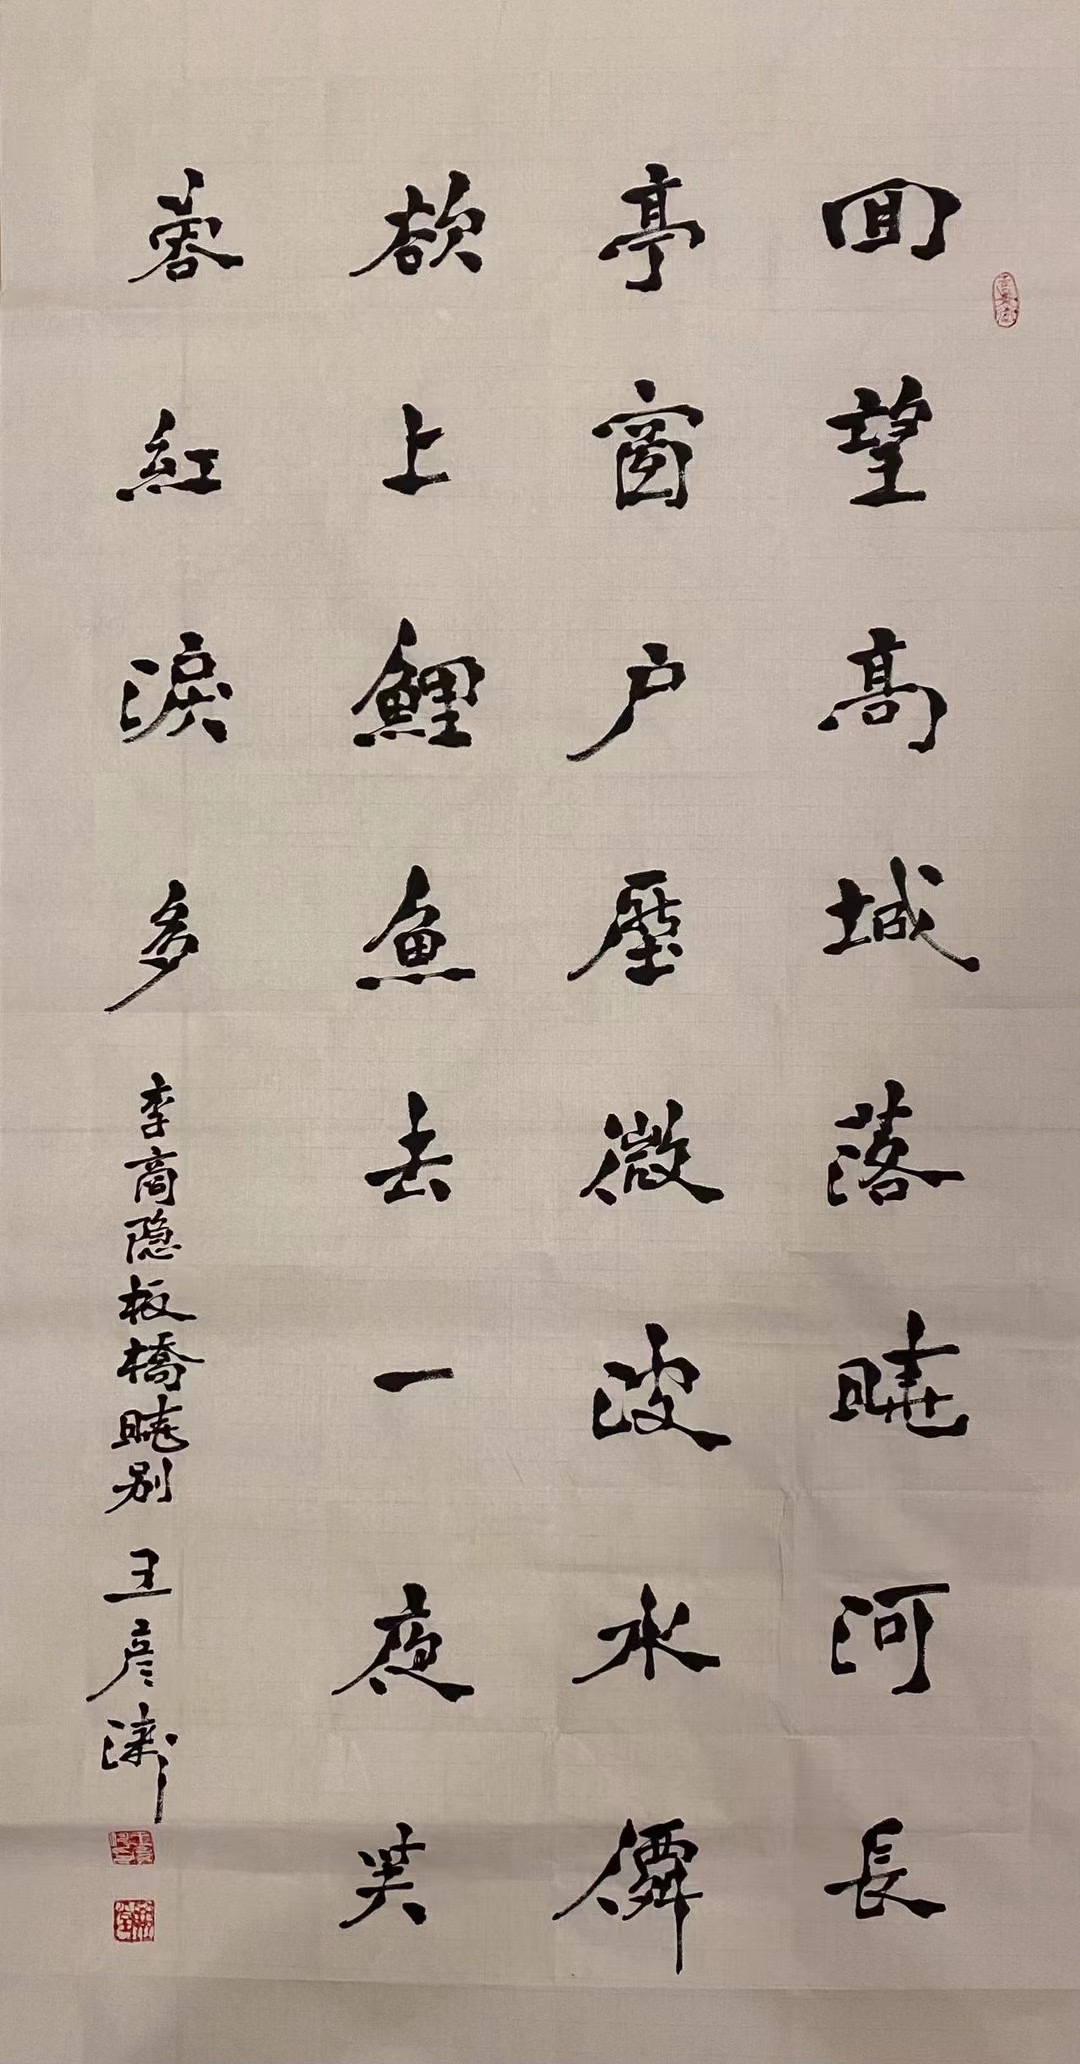 回望高城落曉河長
亭窗户壓微波水僊
欲上鯉魚去一夜芙
蓉紅淚多
李商隐板橋曉别 王彦